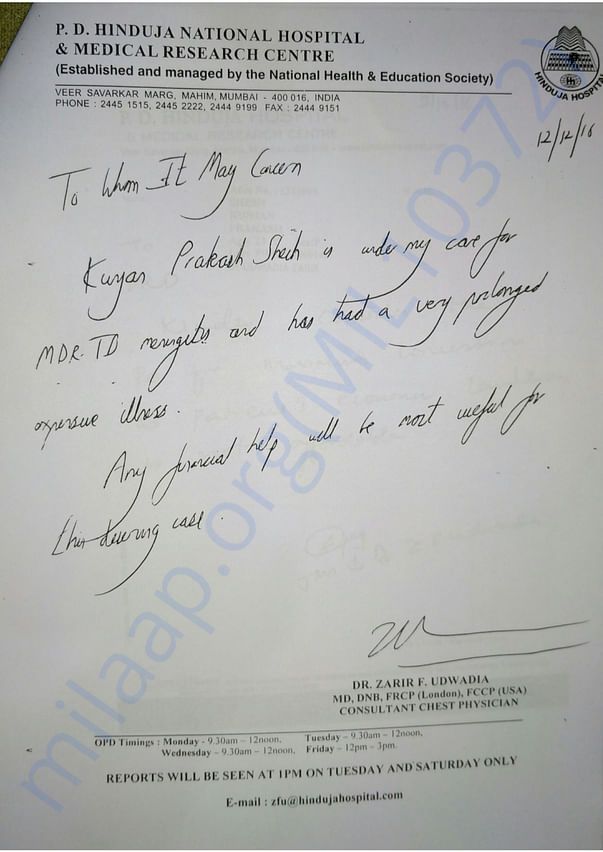 P. D. HINDUJA NATIONAL HOSPITAL
& MEDICAL RESEARCH CENTRE
(Established and managed by the National Health & Education Society)
VEER SAVARKAR MARG, MAHIM, MUMBAI - 400 016, INDIA
PHONE : 2445 1515, 2445 2222, 2444 9199 FAX : 2444 9151
HINDUJA HOSPITAL
12/12/16
To Whom It May Concern
Prakash Sheth is under my care for
MDR. TB meningitis and has had a very prolonged
expensive illness.
Any financial help will be most useful for
this deserving case.
DR. ZARIR F. UDWADIA
MD, DNB, FRCP (London), FCCP (USA)
CONSULTANT CHEST PHYSICIAN
OPD Timings : Monday - 9.30am – 12noon, Tuesday – 9.30am – 12noon,
Wednesday – 9.30am – 12noon, Friday – 12pm – 3pm.
REPORTS WILL BE SEEN AT 1PM ON TUESDAY AND SATURDAY ONLY
E-mail : zfu@hindujahospital.com
milaap.org(MIL110372)